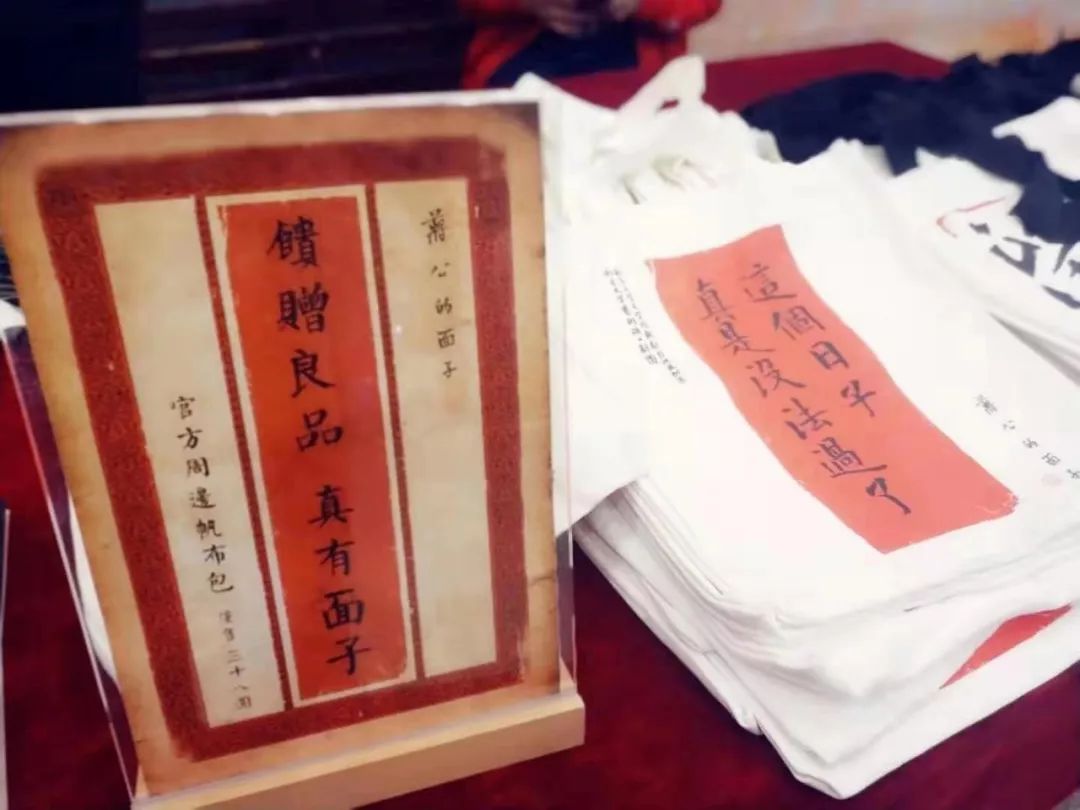 蔣公的面子
饋贈良品 真有面子
官方周邊帆布包 僅售三十八圓
蔣公的面子
這個日子
真是沒法過了